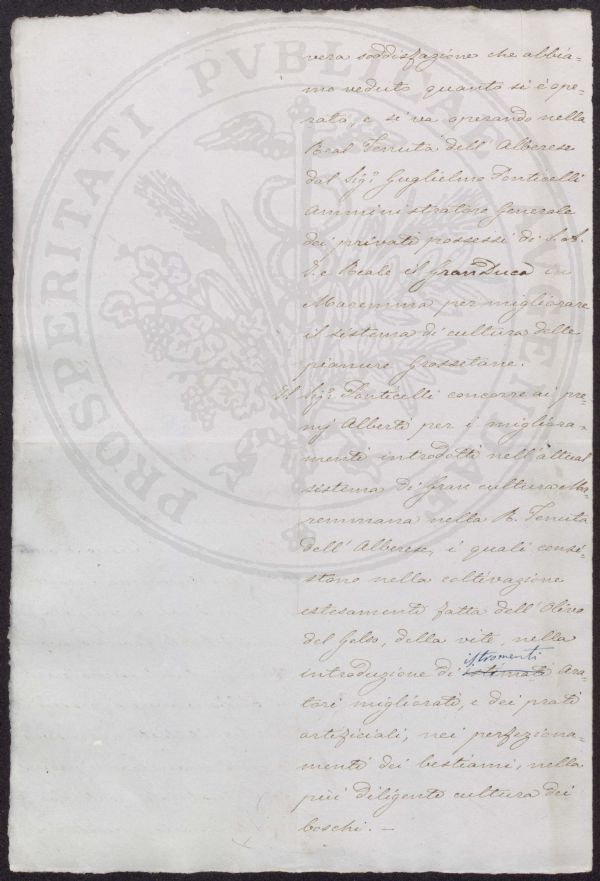 PROSPERITATI PVBLICAE AVGENDAE
vera soddisfazione che abbia-
mo veduto quanto si è ope-
rato, e si va operando nella
Real Tenuta dell' Alberese
dal Sigr. Guglielmo Ponticelli
Amministratore Generale
dei privati possessi di S. A. I.
I. e Reale il GranDuca in
Maremma per migliorare
il sistema di cultura delle
pianure Grossetane.
Il Sigr. Ponticelli concorre ai pre-
mj Alberti per i migliora-
menti introdotti nell' attual
sistema di Gran cultura Ma-
remmana nella R. Tenuta
dell' Alberese, i quali consi-
stono nella coltivazione
estesamente fatta dell' Olivo
del Gelso, della vite, nella
istromenti
introduzione di sistemati Ara-
tori migliorati, e dei prati
artificiali, nei perfeziona-
menti dei bestiami, nella
più diligente cultura dei
boschi. —